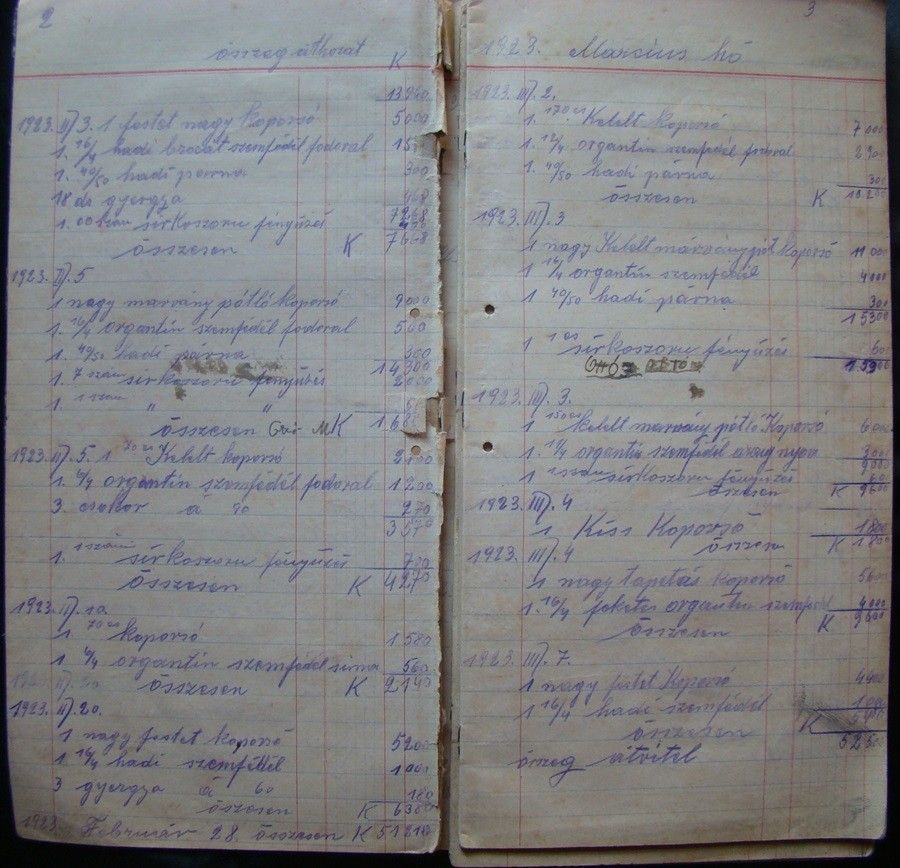 2
összeg áthozat K
13960
1923. II). 3. 1 festet nagy koporsó 5000
1. 16/4 hadi brocát szemfödél fodoral
1. 40/50 hadi párna 300
18 db gyergya 468
7268
1. sirkoszoru fényüzés
összesen K 7668
1923. II). 5
1 nagy marvany pótló koporsó 9000
1. 16/4 organtin szemfédél fodoral
1. 40/50 hadi párna 300
14300
1. 7 szám sirkoszoru fényüzés 2000
1. 1 szam " "
összesen K
1923. II). 5. 1 70 es Kelelt koporsó
1. 6/4 organtin szemfédél fodoral 1200
3 csokor á 90 270
3570
1. 1 szám sirkoszoru fényüzés 700
összesen K 4270
1923. II). 10.
1 70 es koporsó 1580
1. 6/4 organtin szemfédél sima 560
összesen K 2140
1923. II). 20.
1 nagy festet koporsó 5200
1 16/4 hadi szemféttél 1000
3 gyergya á 60 180
öszesen K 6380
1923 Február 28. összesen K
3
1923. Március hó
1923. III). 2.
1. 170 es Kelelt koporsó 7000
1. 12/4 organtin szemfédél fodoral
1. 40/50 hadi párna 300
összesen K 10200
1923. III). 3
1 nagy Kelelt márványpót koporsó 11000
1 16/4 organtin szemfédél 4000
1 40/50 hadi párna 300
15300
1 1 es sirkoszoru fényüzés 60
1923. III). 3.
1 150 es kelelt marvány pótló Koporsó 6000
1. organtin szemfédél arany nyom 3000
9000
1 sirkoszoru fényüzés
öszesen K 9600
1923. III). 4
1 Kiss Koporsó 1800
összesen K 1800
1923. III). 4
1 nagy tapétás koporsó 5600
1. 16/4 fekete organtin szemfédél 4000
összesen K 9600
1923. III). 7.
1 nagy festet Koporsó 4400
1 16/4 hadi szemfédél 1000
összesen K
összeg átvitel